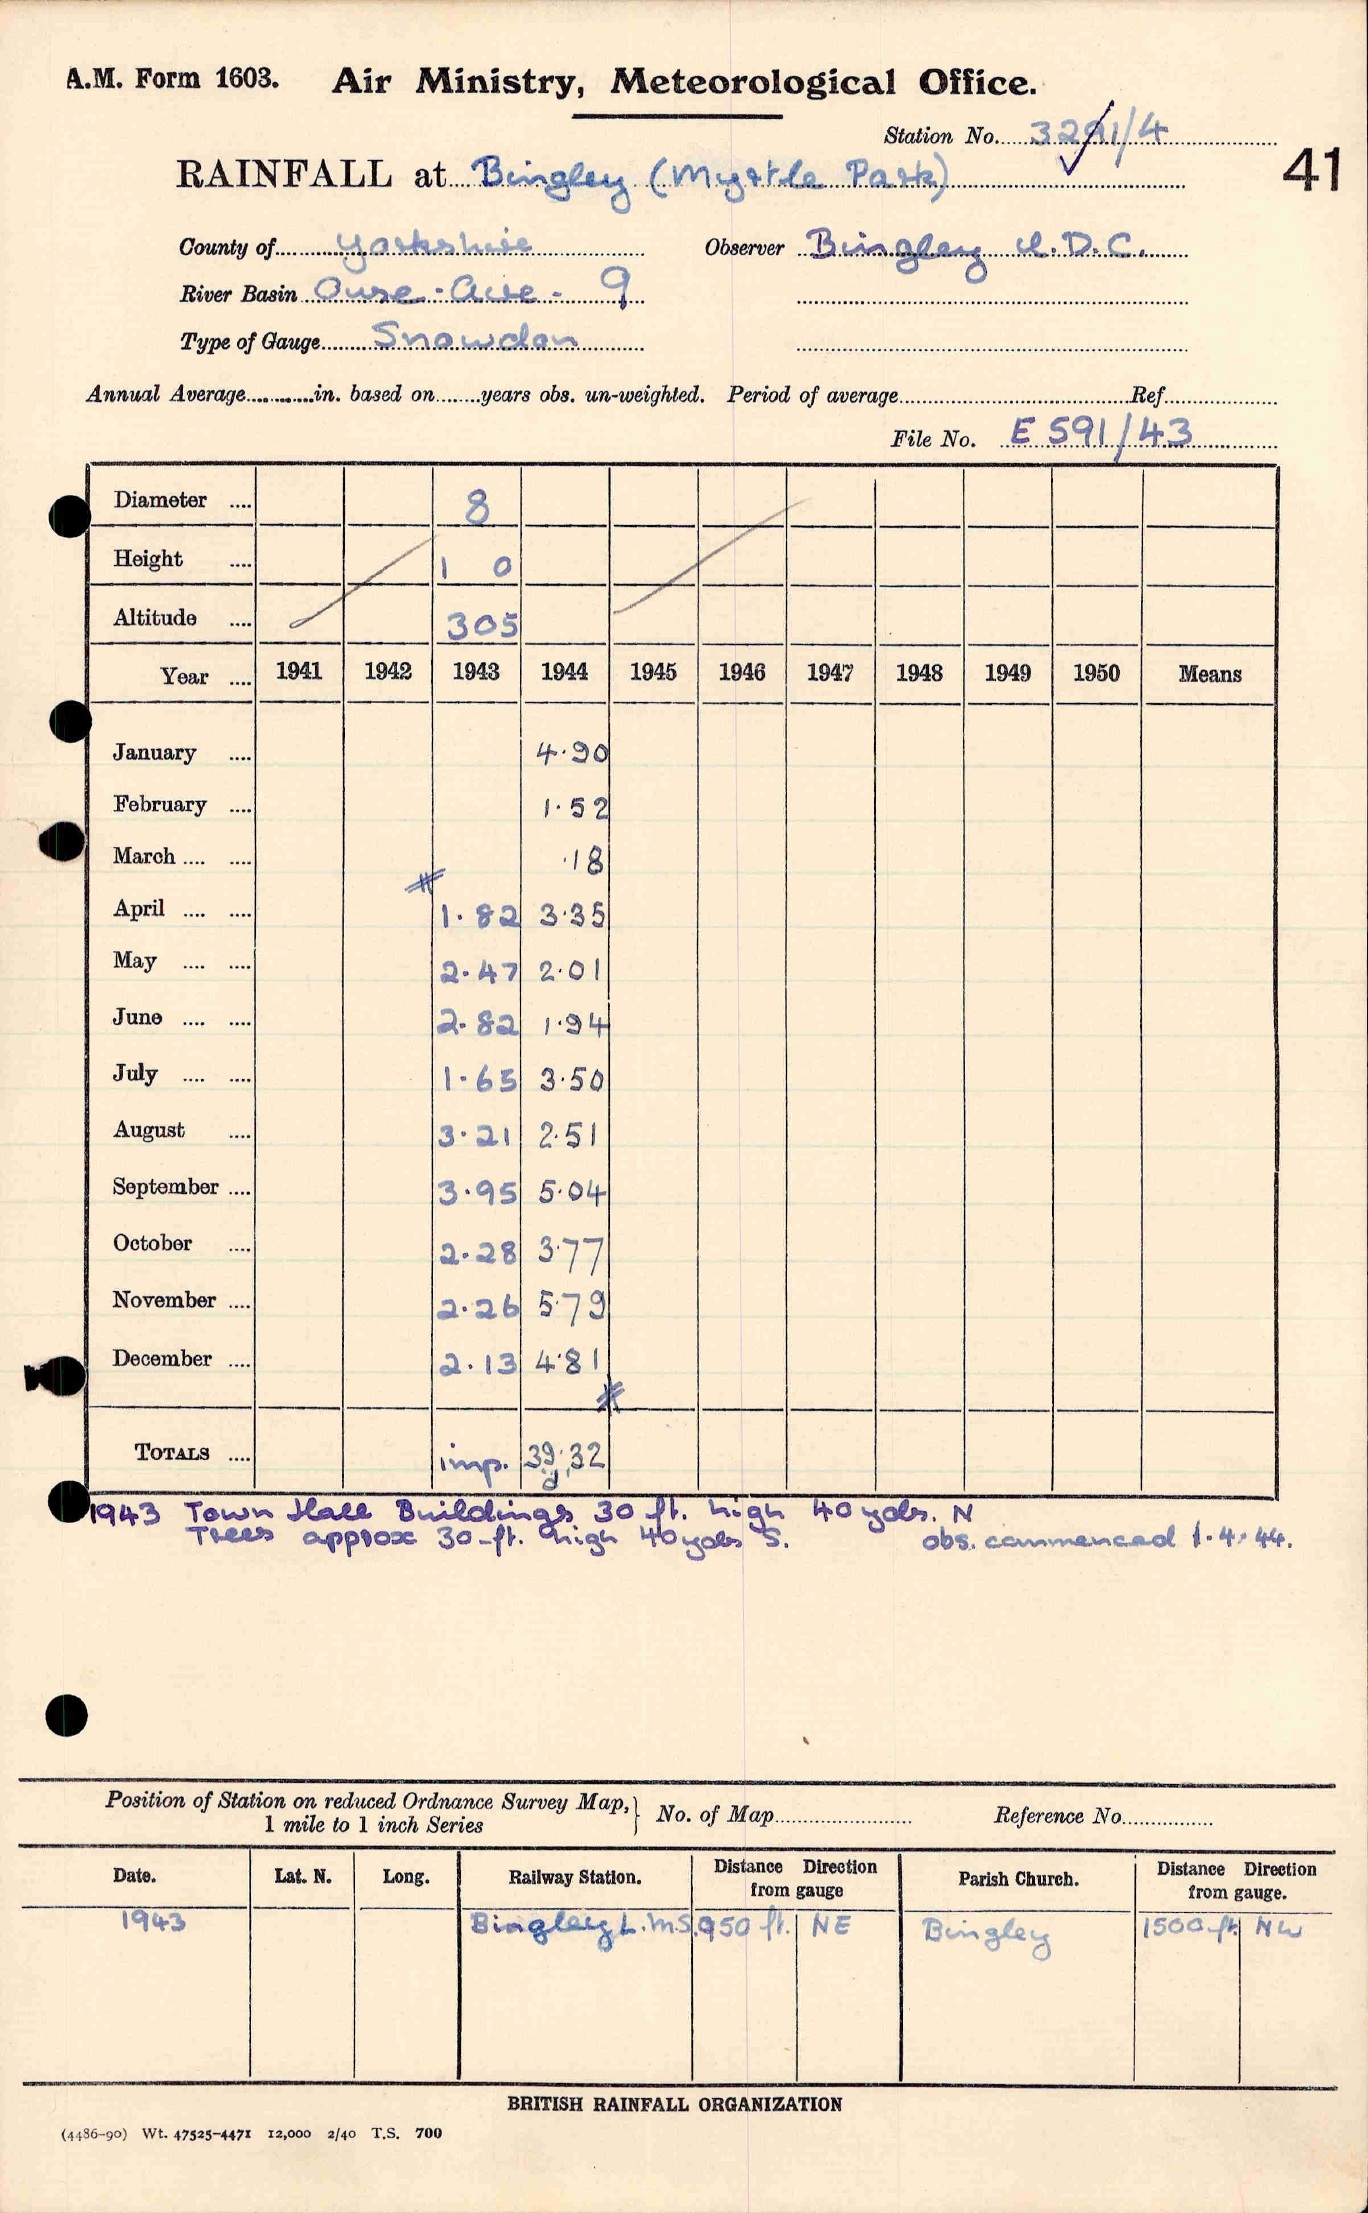 A.M. Form 1603. Air Ministry, Meteorological Office.
Station No. 3291/4
41
RAINFALL at Bingley (Myrtle Park)
County of Yorkshire Observer Bingley U.D.C.
River Basin Ouse-Aire- 9
Type of Gauge Snowdon
Annual Average............in. based on........years obs. un-weighted. Period of average............Ref............
File No. E 591/43
Diameter .... 8
Height .... 1 0
Altitude .... 305
Year .... 1941 1942 1943 1944 1945 1946 1947 1948 1949 1950 Means
January .... 4.90
February .... 1.52
March .... .... .18
April .... .... 1.82 3.35
May .... .... 2.47 2.01
June .... .... 2.82 1.94
July .... .... 1.65 3.50
August .... 3.21 2.51
September .... 3.95 5.04
October .... 2.28 3.77
November .... 2.26 5.79
December .... 2.13 4.81
TOTALS .... imp. 39.32
1943 Town Hall Buildings 30 ft. high 40 yds. N
Trees approx 30 ft. high 40 yds S. obs. commenced 1.4.44.
Position of Station on reduced Ordnance Survey Map, } No. of Map............ Reference No............
1 mile to 1 inch Series
Date. Lat. N. Long. Railway Station. Distance from gauge Direction Parish Church. Distance from gauge. Direction
1943 Bingley L.M.S. 950 ft. NE Bingley 1500 ft. NW
BRITISH RAINFALL ORGANIZATION
(4486-90) Wt. 47525-4471 12,000 2/40 T.S. 700